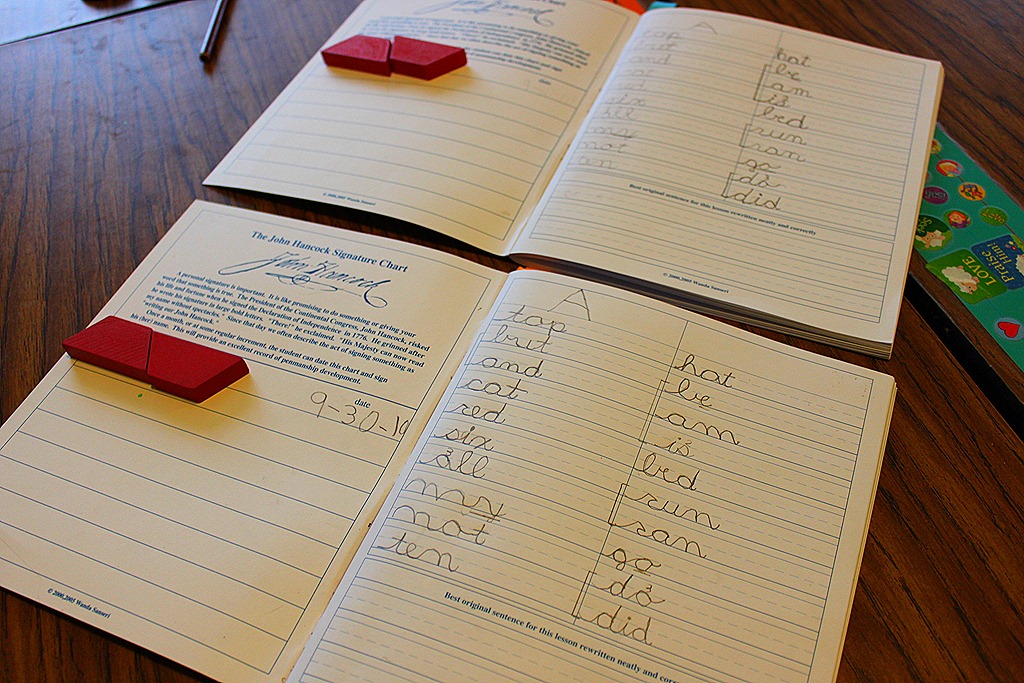 The John Hancock Signature Chart
John Hancock
A personal signature is important. It is like promising to do something or giving your
word that something is true. The President of the Continental Congress, John Hancock, risked
his life and fortune when he signed the Declaration of Independence in 1776. He grinned after
he wrote his signature in large bold letters. "There!" he exclaimed. "His Majesty can now read
my name without spectacles." Since that day we often describe the act of signing something as
"writing our John Hancock."
Once a month, or at some regular increment, the student can date this chart and sign
his (her) name. This will provide an excellent record of penmanship development.
date
9-30-10
© 2000,2005 Wanda Sanseri
A
top
but
and
cat
red
six
all
my
not
ten
hat
be
am
is
bed
run
ran
go
do
did
Best original sentence for this lesson rewritten neatly and
A
top
but
and
six
all
my
not
hot
be
am
is
bed
run
ran
go
do
did
Best original sentence for this lesson rewritten neatly and correctly
© 2000,2005 Wanda Sanseri
© 2000,2005 Wanda Sanseri
Praise
Him!
LOVE